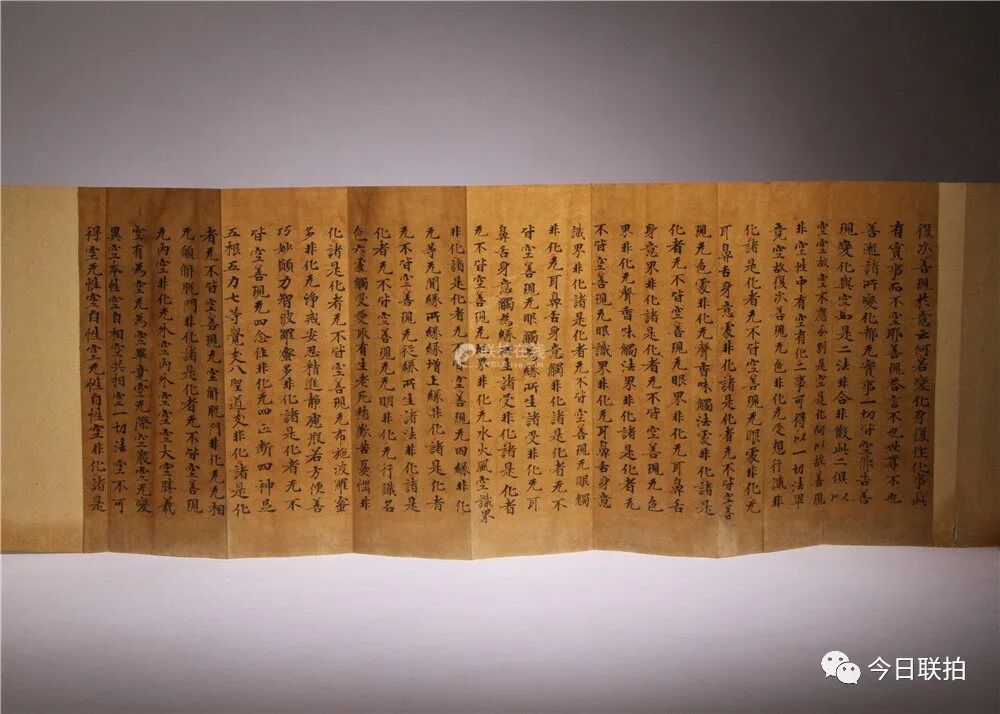 復次善現於意云何若變化身復作化事此
有實事而不空耶善現荅言不也世尊不也
善逝諸所變化都无實事一切皆空佛告善
現變化與空如是二法非合非散此二俱以
空空故空不應分別是空是化何以故善現
非空性中有空有化二事可得以一切法畢
竟空故復次善現无色非化无受想行識非
化諸是化者无不皆空善現无眼處非化无
耳鼻舌身意處非化諸是化者无不皆空善
現无色處非化无聲香味觸法處非化諸是
化者无不皆空善現无眼界非化无耳鼻舌
身意界非化諸是化者无不皆空善現无色
界非化无聲香味觸法界非化諸是化者无
不皆空善現无眼識界非化无耳鼻舌身意
識界非化諸是化者无不皆空善現无眼觸
非化无耳鼻舌身意觸非化諸是化者无不
皆空善現无眼觸為緣所生諸受非化无耳
鼻舌身意觸為緣所生諸受非化諸是化者
无不皆空善現无地界非化无水火風空識界
非化諸是化者无不皆空善現无四緣非化
无等无間緣所緣緣增上緣非化諸是化者
无不皆空善現无從緣所生諸法非化諸是
化者无不皆空善現无无明非化无行識名
色六處觸受愛取有生老死愁歎苦憂惱非
化諸是化者无不皆空善現无布施波羅蜜
多非化无淨戒安忍精進靜慮般若方便善
巧妙願力智波羅蜜多非化諸是化者无不
皆空善現无四念住非化无四正斷四神足
五根五力七等覺支八聖道支非化諸是化
者无不皆空善現无空解脫門非化无无相
无願解脫門非化諸是化者无不皆空善現
无內空非化无外空內外空空空大空勝義
空有為空无為空畢竟空无際空散空无變
異空本性空自相空共相空一切法空不可
得空无性空自性空无性自性空非化諸是
联拍在线
今日联拍